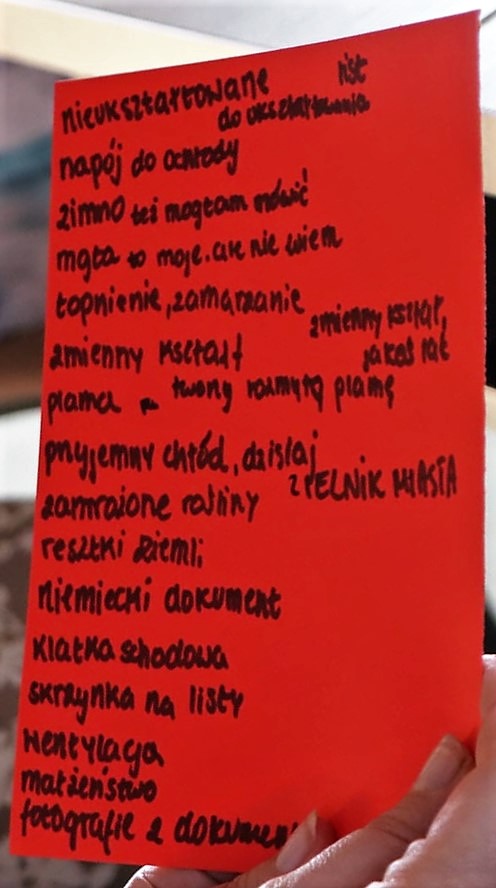 nieukształtowane
do ukształtowania
napój do ochłody
zimno też mogłam mówić!
mgła to moje. ale nie wiem
topnienie, zamarzanie
zmienny kształt,
zmienny kształt
jakoś lat
plama tworzy rozmytą plamę
przyjemny chłód, dzisiaj
ZPELNIK MIASTA
zamrożone rośliny
resztki ziemi
niemiecki dokument
klatka schodowa
skrzynka na listy
wentylacja
małżeństwo
fotografie z dokumen